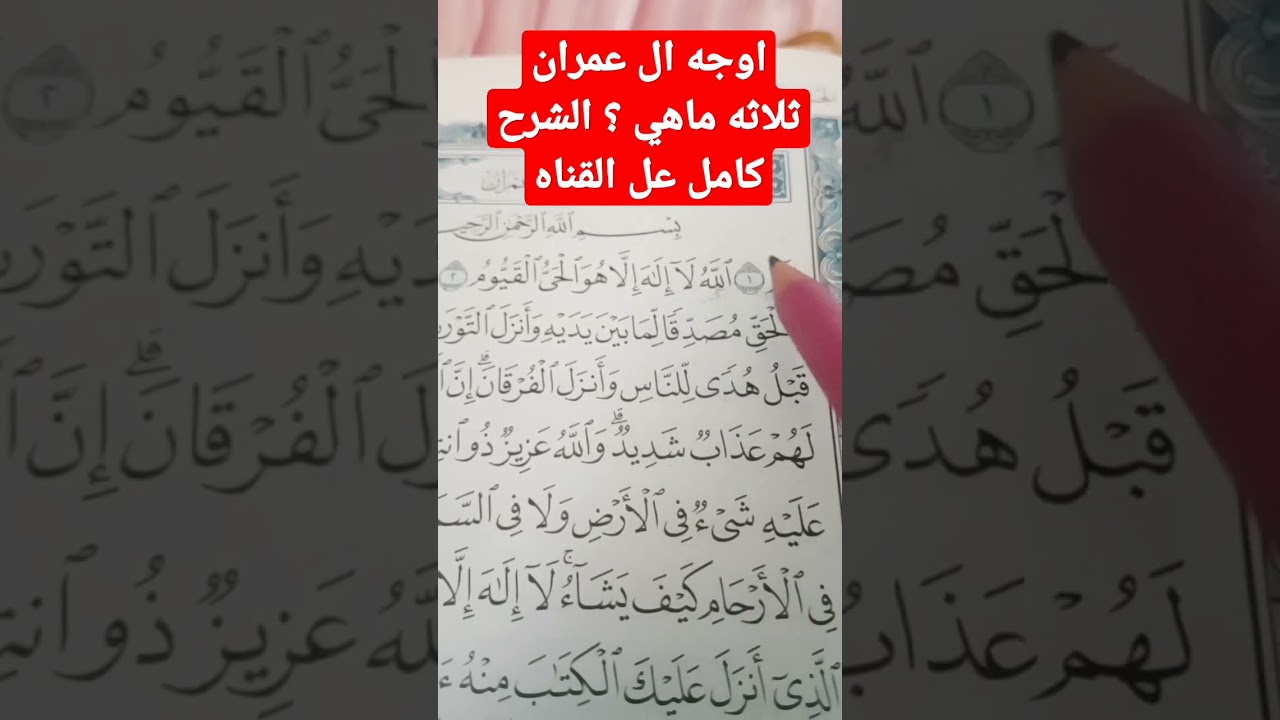 اوجه ال عمران
ثلاثه ماهي ؟ الشرح
كامل عل القناه
بِسْمِ ٱللَّهِ ٱلرَّحْمَٰنِ ٱلرَّحِيمِ
١ ٱللَّهُ لَآ إِلَٰهَ إِلَّا هُوَ ٱلْحَىُّ ٱلْقَيُّومُ ٢
ٱلْحَقِّ مُصَدِّقًا لِّمَا بَيْنَ يَدَيْهِ وَأَنزَلَ
قَبْلُ هُدًى لِّلنَّاسِ وَأَنزَلَ ٱلْفُرْقَانَ ۗ إِنَّ
لَهُمْ عَذَابٌ شَدِيدٌ ۗ وَٱللَّهُ عَزِيزٌ ذُو
عَلَيْهِ شَىْءٌ فِى ٱلْأَرْضِ وَلَا فِى
فِى ٱلْأَرْحَامِ كَيْفَ يَشَآءُ ۚ لَآ إِلَٰهَ إِلَّا
ٱلَّذِىٓ أَنزَلَ عَلَيْكَ ٱلْكِتَٰبَ مِنْهُ